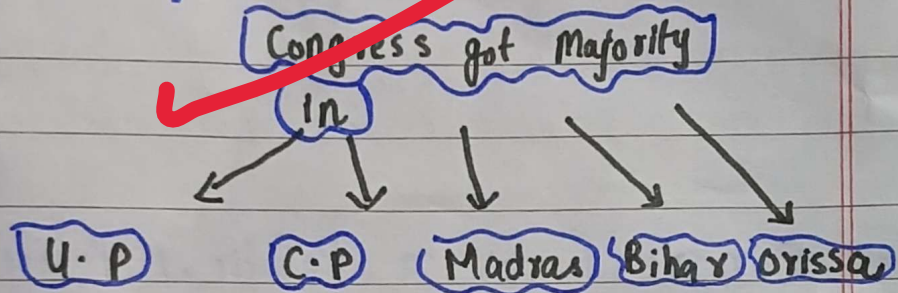 Congress got Majority
in
U.P C.P Madras Bihar Orissa